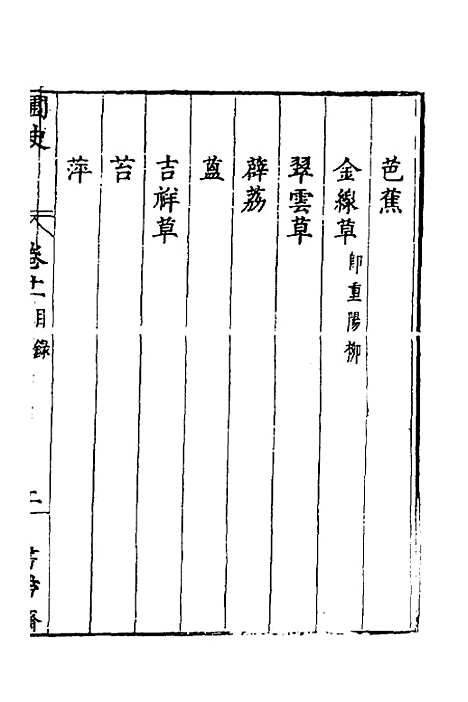 芭蕉
金線草即重陽柳
翠雲草
薜荔
蓝
吉祥草
苔
萍
卷十 目錄